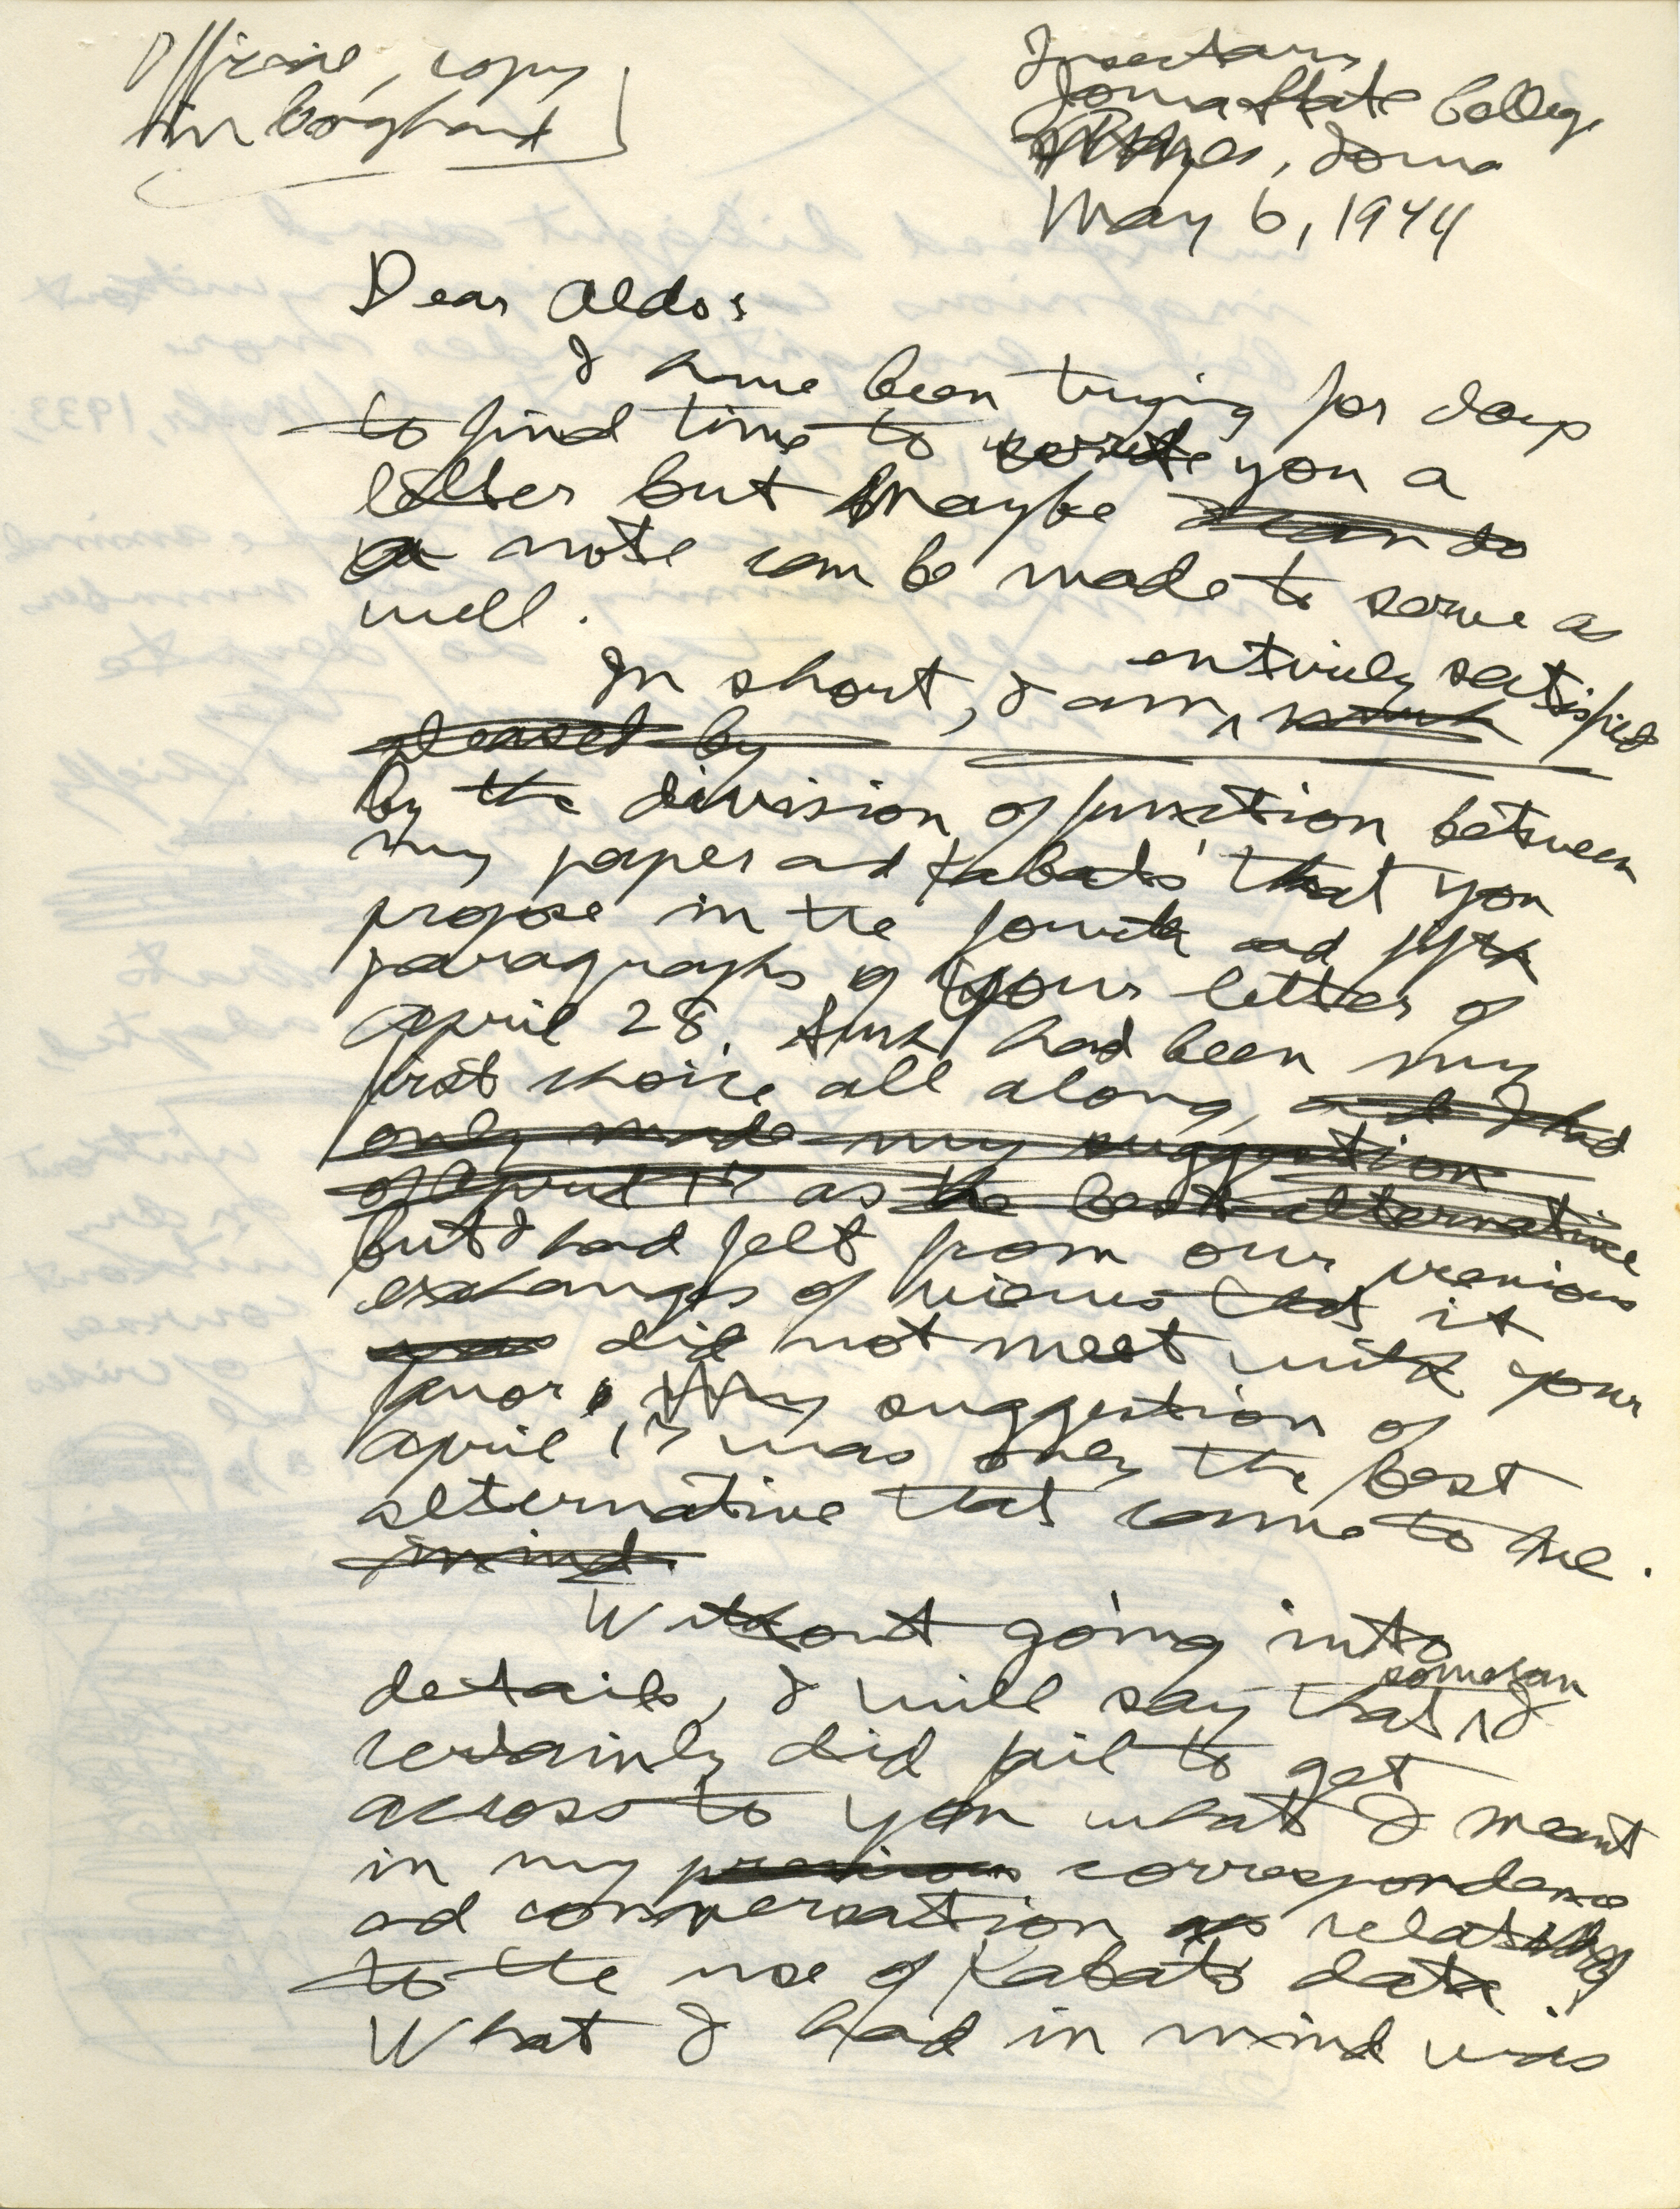 Official, copy
in longhand
Insectary
Iowa State College
Ames, Iowa
May 6, 1944
Dear Aldo:
I have been trying for days
to find time to write you a
letter but maybe
a note can be made to serve as
well.
entirely satisfied
In short, I am ^ much
pleased by
by the division of function between
my paper ad Kabat's that you
propose in the fourth ad fifth
paragraphs of your letter of
April 28. Such had been my
first choice all along, ad I had
only made my suggestion
of April 17 as the best alternative
but I had felt from our previous
exchanges of views that it
was did not meet with your
favor. My suggestion of
April 17 was only the best
alternative that came to me.
in mind.
Without going into
somehow
details, I will say that ^ I
certainly did fail to get
across to you what I meant
in my previous correspondence
ad conversation as relating
to the use of Kabat's data.
What I had in mind was